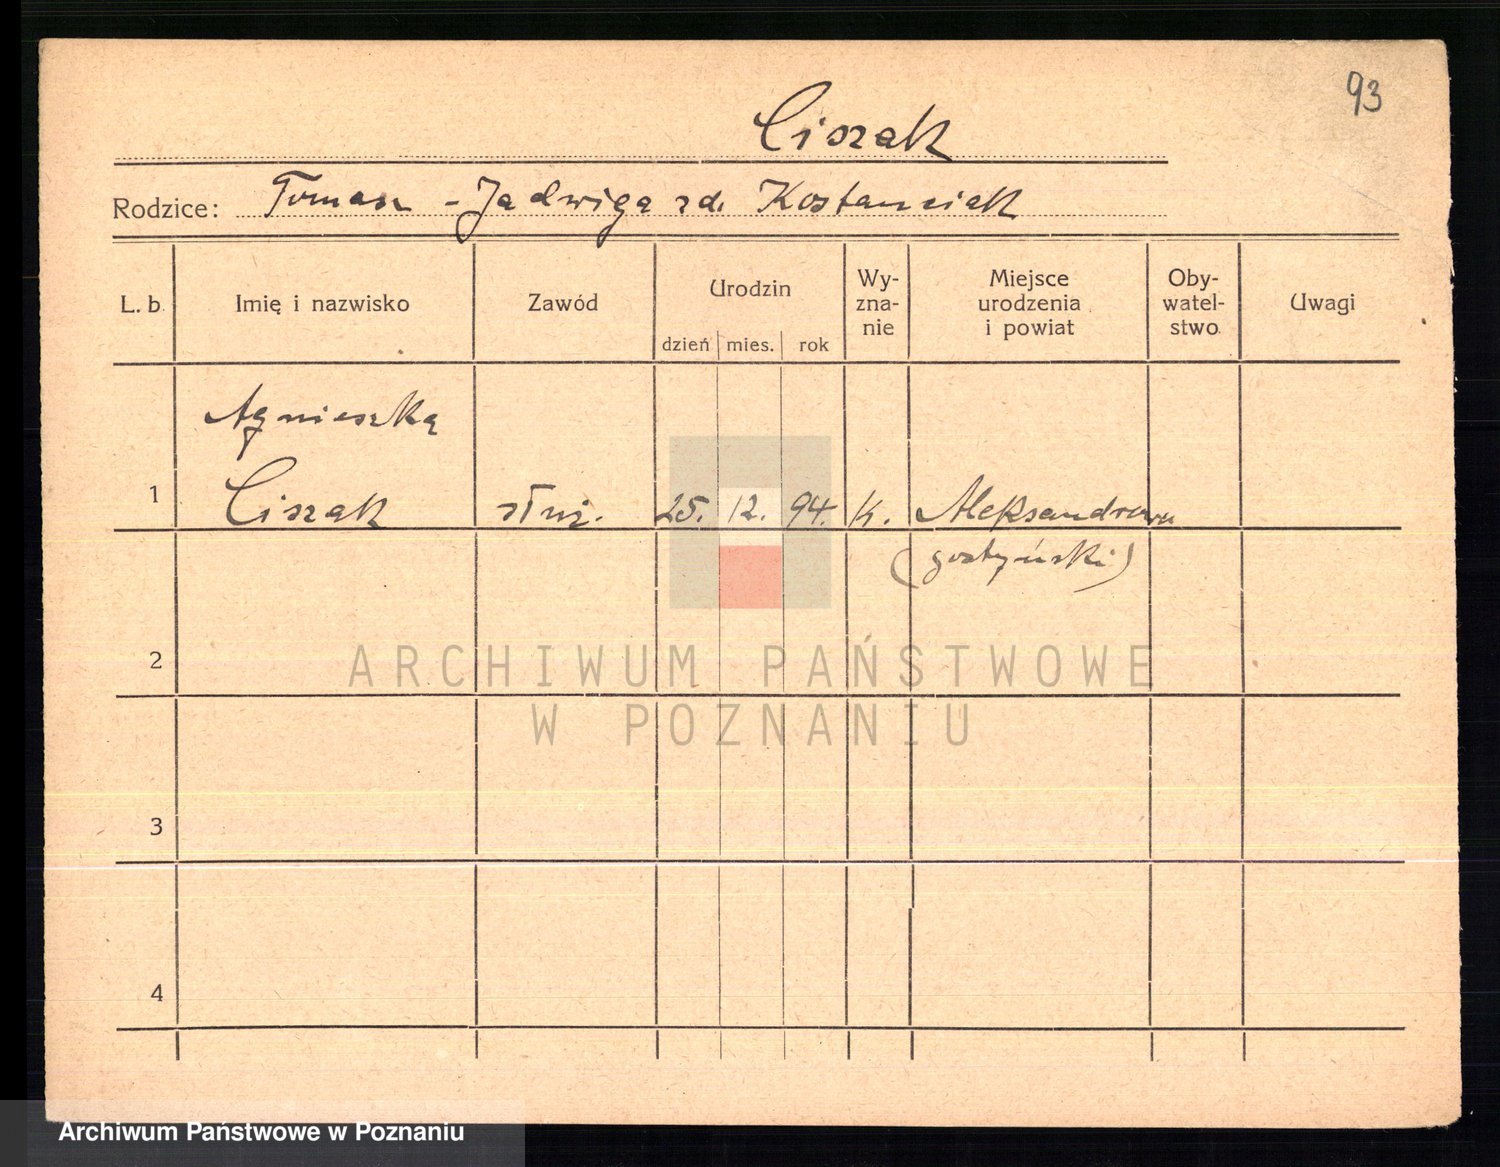 93
Ciszak
Rodzice: Tomasz - Jadwiga zd. Kostanciak
L. b. Imię i nazwisko Zawód Urodzin Wy-zna-nie Miejsce urodzenia i powiat Oby-watel-stwo Uwagi
dzień mies. rok
Agnieszka
1 Ciszak służ. 25. 12. 94. K. Aleksandrowo
(gostyński)
2
ARCHIWUM PAŃSTWOWE
W POZNANIU
3
4
Archiwum Państwowe w Poznaniu